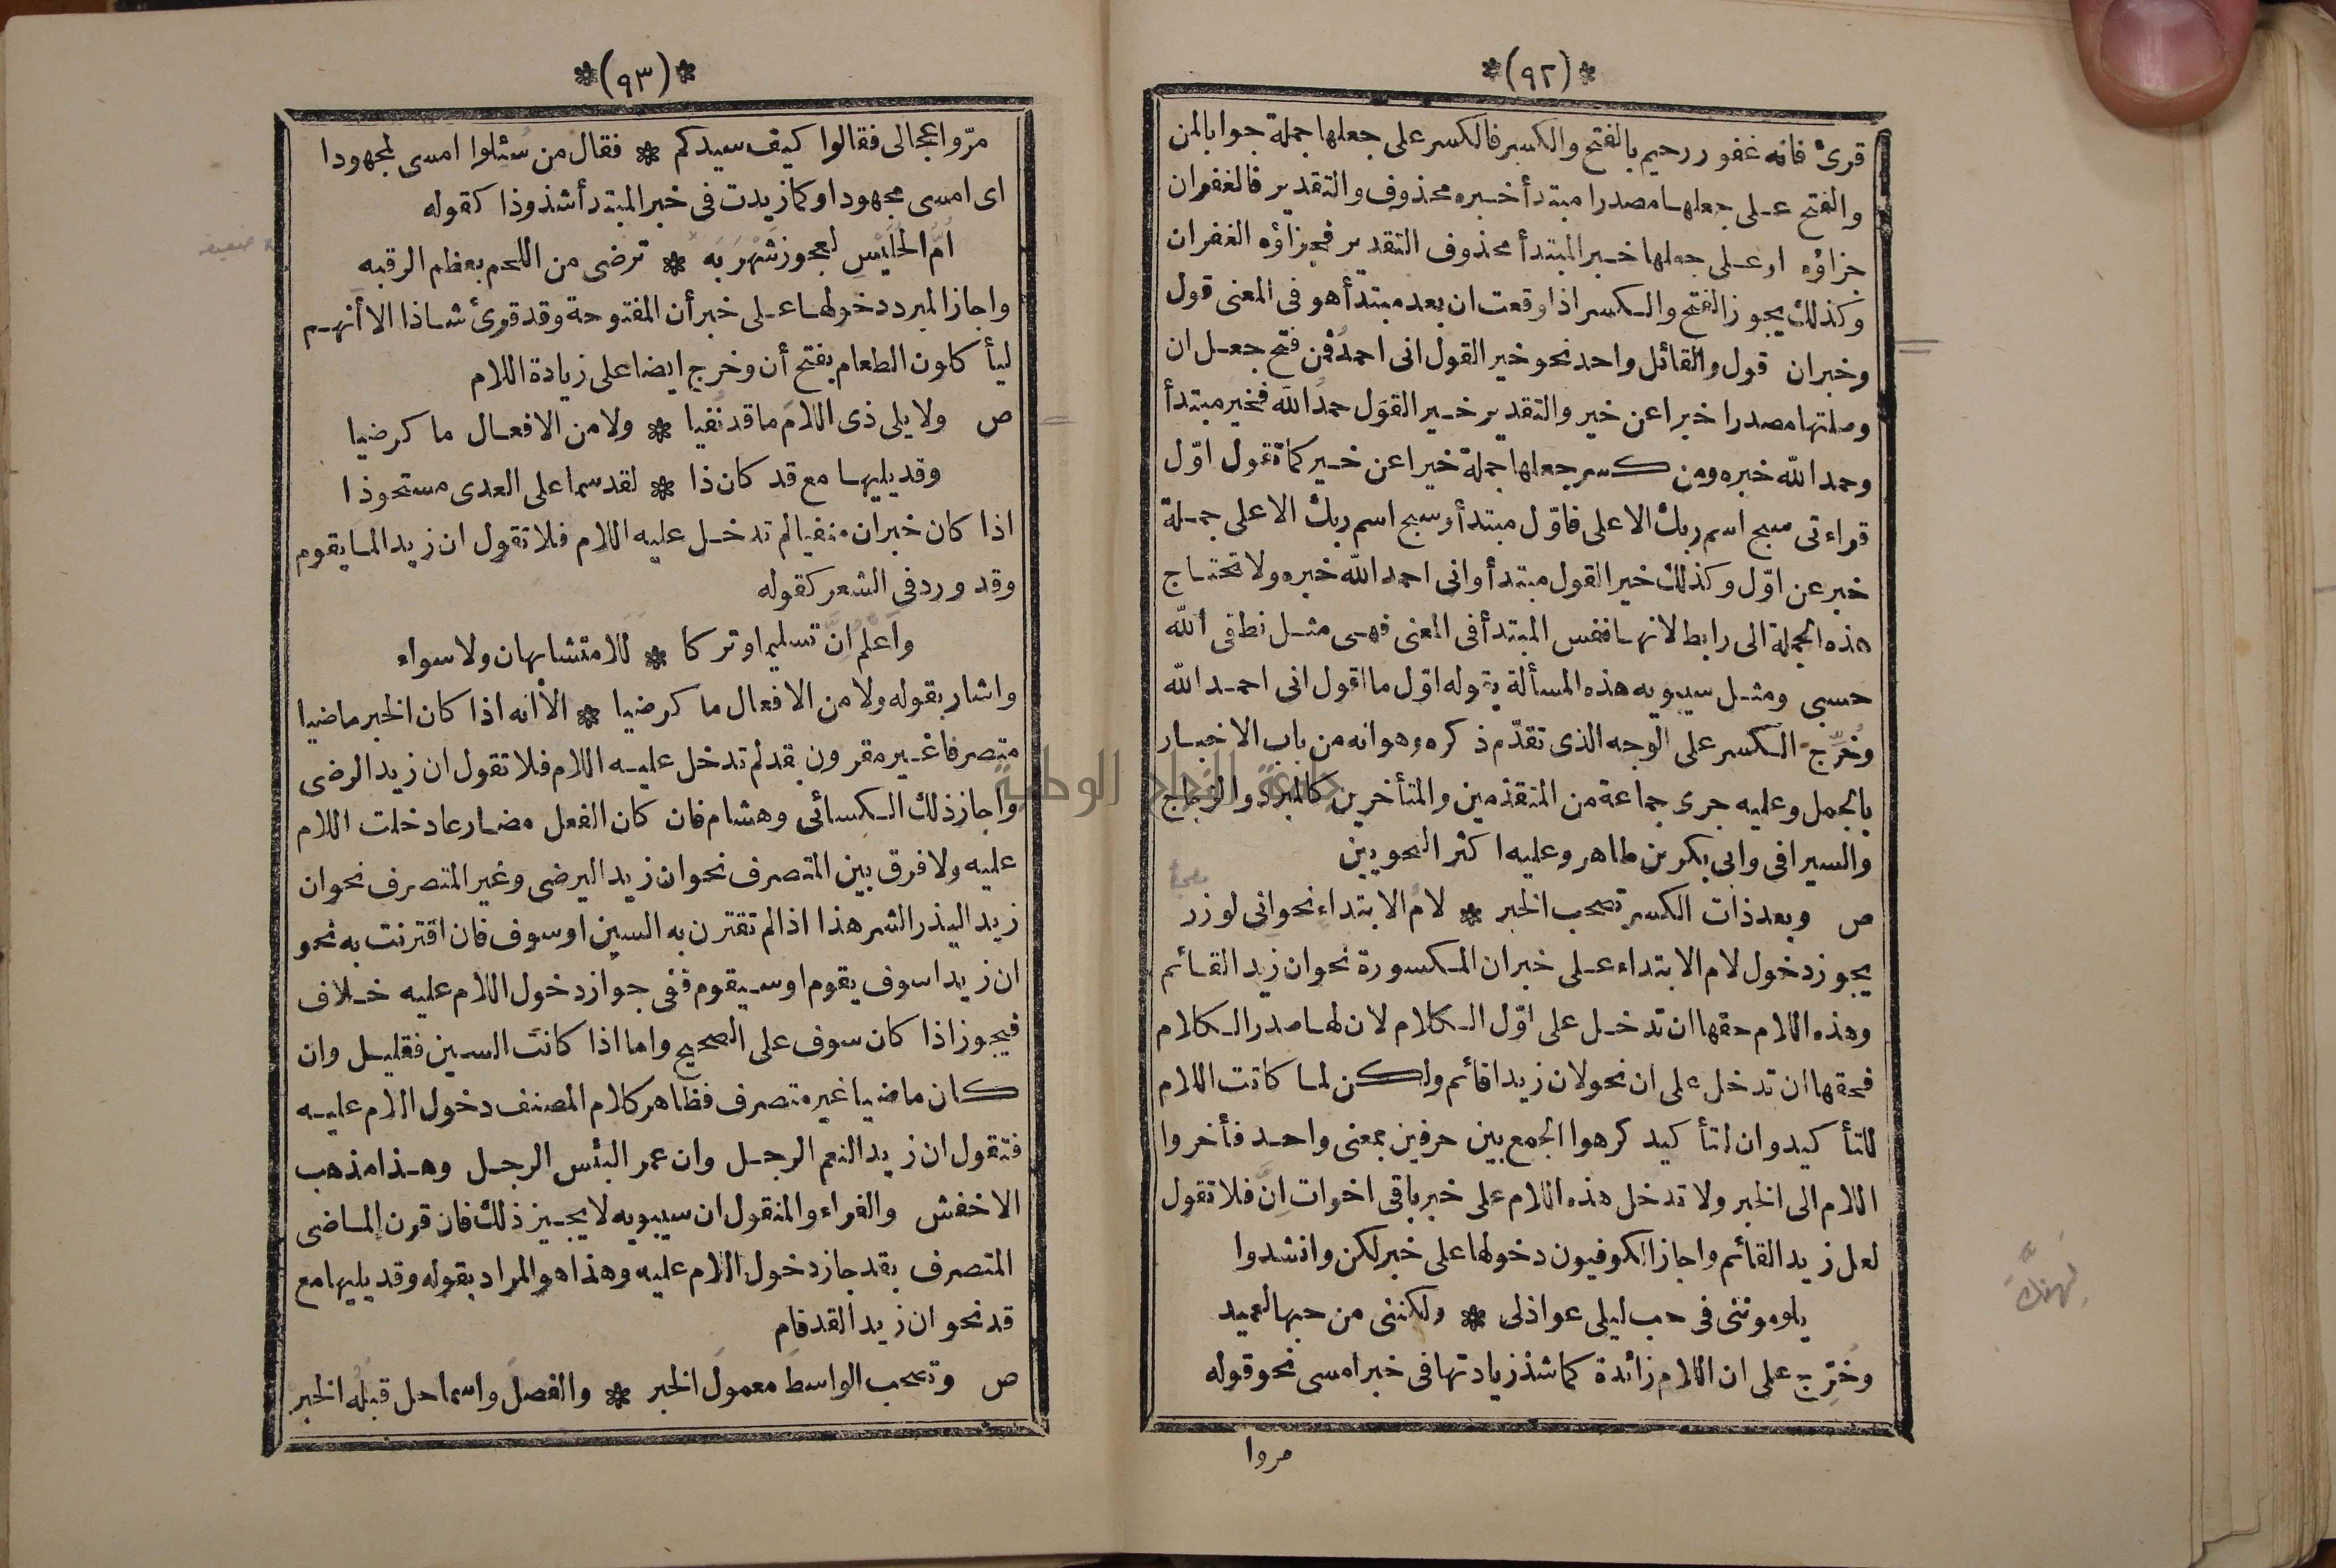 *(٩٢)*
قرئ فانه غفور رحيم بالفتح والكسر فالكسر على جعلها جملة جوابا لمن
والفتح على جعلها مصدرا مبتدأ خبره محذوف والتقدير فالغفران
جزاؤه او على جعلها خبرا لمبتدأ محذوف التقدير فجزاؤه الغفران
وكذلك يجوز الفتح والكسر اذا وقعت ان بعد مبتدأ هو فى المعنى قول
وخبران قول والقائل واحد نحو خير القول انى احمدُ فمن فتح جعل ان
وصلتها مصدرا خبرا عن خير والتقدير خير القول حمدُ الله فخير مبتدأ
وحمد الله خبره ومن كسر جعلها جملة خبرا عن خير كما تقول اوّل
قراءتى سبح اسم ربك الاعلى فاوّل مبتدأ وسبح اسم ربك الاعلى جملة
خبر عن اوّل وكذلك خير القول مبتدأ وانى احمد الله خبره ولا تحتاج
هذه الجملة الى رابط لانها نفس المبتدأ فى المعنى فهى مثل نطقى الله
حسبى ومثل سيبويه هذه المسألة بقوله اوّل ما اقول انى احمد الله
وخُرِّج الكسر على الوجه الذى تقدّم ذكره وهو انه من باب الاخبار
بالجمل وعليه جرى جماعة من المتقدمين والمتأخرين كالمبرد والزجاج
والسيرافى وابى بكر بن طاهر وعليه اكثر النحويين
ص وبعد ذات الكسر تصحب الخبر * لامُ الابتداء نحو انى لوزر
يجوز دخول لام الابتداء على خبر ان المكسورة نحو ان زيد القائم
وهذه اللام حقها ان تدخل على اوّل الكلام لان لها صدر الكلام
فحقها ان تدخل على ان نحو لان زيدا قائم ولكن لما كانت اللام
للتأكيد وان لتأكيد كرهوا الجمع بين حرفين بمعنى واحد فأخروا
اللام الى الخبر ولا تدخل هذه اللام على خبر باقى اخوات انَّ فلا تقول
لعل زيد القائم واجاز الكوفيون دخولها على خبر لكن وانشدوا
يلوموننى فى حب ليلى عواذلى * ولكننى من حبها لعميد
وخُرِّج على ان اللام زائدة كما شذ زيادتها فى خبر امسى نحو قوله
مروا
لهنّك
*(٩٣)*
مرّوا عجالى فقالوا كيف سيدكم * فقال من سُئلوا امسى لمجهودا
اى امسى مجهودا وكما زيدت فى خبر المبتدأ شذوذا كقوله
اُمُّ الحُلَيْسِ لعجوز شَهْرَبَه * ترضى من اللحم بعظم الرقبه
واجاز المبرد دخولها على خبر أن المفتوحة وقد قرئ شاذا الا أنهم
ليأكلون الطعام بفتح أن وخرج ايضا على زيادة اللام
ص ولا يلى ذى اللامَ ما قد نُفيا * ولا من الافعال ما كرضيا
وقد يليها مع قد كان ذا * لقد سما على العدى مستحوذا
اذا كان خبر ان منفيا لم تدخل عليه اللام فلا تقول ان زيد الما يقوم
وقد ورد فى الشعر كقوله
واَعْلم اِنّ تسليما وتركا * للامتشابهان ولا سواء
واشار بقوله ولا من الافعال ما كرضيا * الا انه اذا كان الخبر ماضيا
متصرفا غير مقرون بقد لم تدخل عليه اللام فلا تقول ان زيد الرضى
واجاز ذلك الكسائى وهشام فان كان الفعل مضارعا دخلت اللام
عليه ولا فرق بين المتصرف نحو ان زيد اليرضى وغير المتصرف نحو ان
زيد اليذر الشر هذا اذا لم تقترن به السين او سوف فان اقترنت به نحو
ان زيد اسوف يقوم او سيقوم ففى جواز دخول اللام عليه خلاف
فيجوز اذا كان سوف على الصحيح واما اذا كانت السين فقليل وان
كان ماضيا غير متصرف فظاهر كلام المصنف دخول اللام عليه
فتقول ان زيد النعم الرجل وان عمر البئس الرجل وهذا مذهب
الاخفش والفراء والمنقول ان سيبويه لا يجيز ذلك فان قرن الماضى
المتصرف بقد جاز دخول اللام عليه وهذا هو المراد بقوله وقد يليها مع
قد نحو ان زيد القد قام
ص وتصحب الواسط معمولَ الخبر * والفصلَ واسما حل قبله الخبر
جامعة النجاح الوطنية